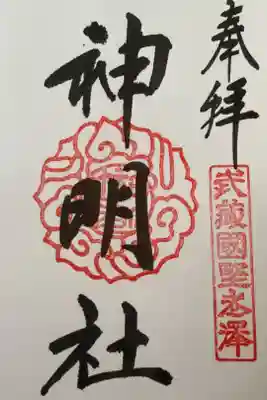 奉拝
武蔵國堅永澤
神明社